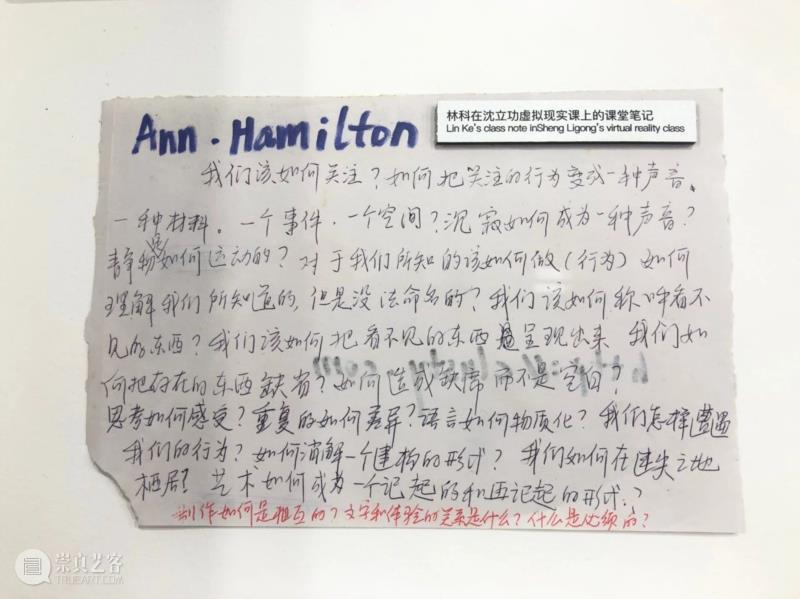 Ann. Hamilton
林科在沈立功虚拟现实课上的课堂笔记
Lin Ke's class note inSheng Ligong's virtual reality class
我们该如何关注?如何把关注的行为变成一种声音、
一种材料。一个事件.一个空间?沉寂如何成为一种声音?
静物如何运动的?对于我们所知的该如何做(行为)如何
理解我们所知道的,但是没法命名的?我们该如何称呼看不
见的东西?我们该如何把看不见的东西呈现出来 我们如
何把存在的东西缺省?如何造成缺席而不是空白?
思考如何感受?重复的如何差异?语言如何物质化?我们怎样遭遇
我们的行为?如何消解一个建构的形式?我们如何在迷失之地
栖居?艺术如何成为一个记起的和再记起的形式?
制作如何是相互的?文字和体验的关系是什么?什么是必须的?
崇真艺客
TRUEART.COM